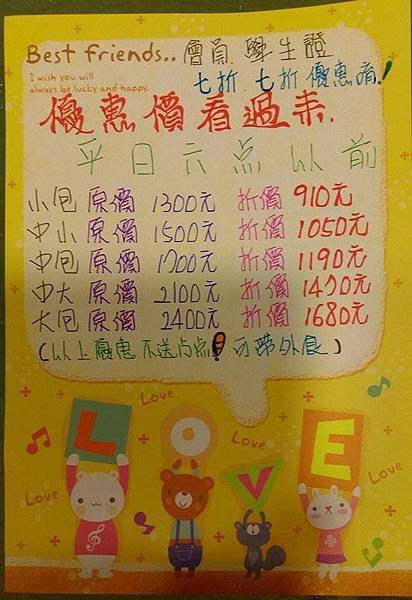 Best friends.. 會員.學生證
I wish you will
always be lucky and happy.
七折.七折優惠唷!
優惠價看過來.
平日六点以前
小包 原價 1300元 折價 910元
中小 原價 1500元 折價 1050元
中包 原價 1700元 折價 1190元
中大 原價 2100元 折價 1470元
大包 原價 2400元 折價 1680元
(以上優惠.不送点点!可帶外食)
Love
LOVE
Love
Love
Love